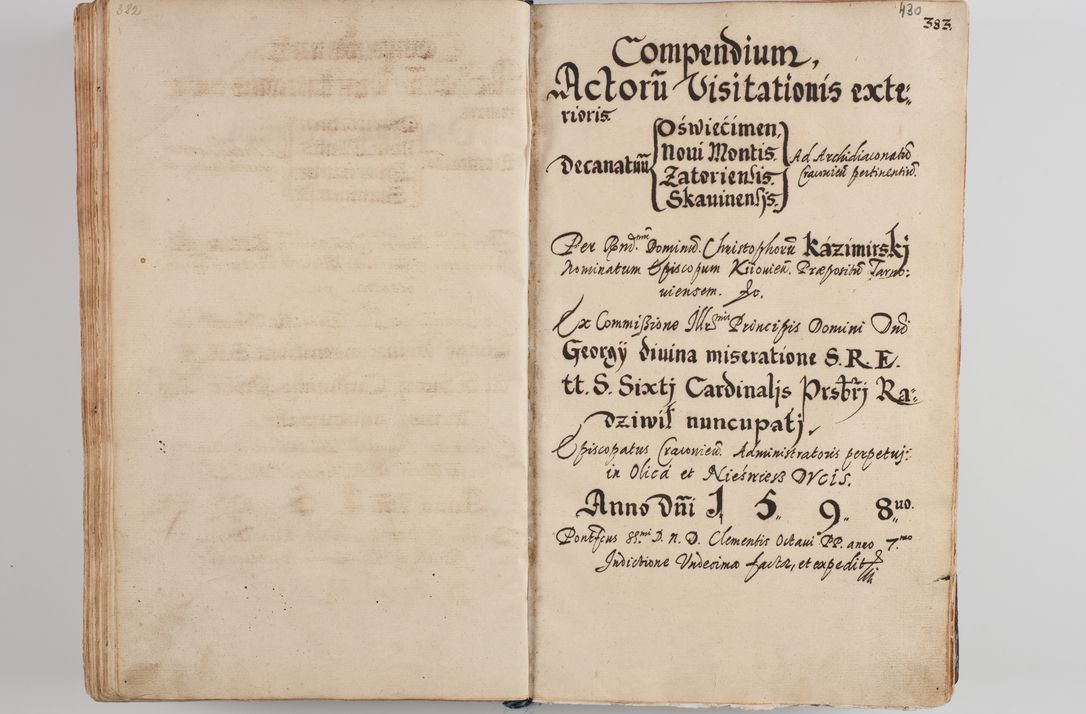 382
430
383.
Compendium,
Actorũ Visitationis exte:
rioris.
Decanatuũ
Oświećimen,
Noui Montis.
Zatoriensis.
Skauinensis.
Ad Archidiaconatũ
Cracovieñ pertinentiũ.
Per Rnd.um Dominũ. Christophorũ Kázimirskj
Nominatum Episcopum Kiiovieñ. Præpositũ Tarno:
uiensem. &c.
Ex Commissione Illr.mi Principis Domini Dnĩ
Georgÿ diuina miseratione S. R. E.
tt. S. Sixtj Cardinalis Prsbr̃j Ra:
dziwił nuncupatj.
Episcopatus Cracovieñ. Administratoris perpetuj:
in Olica et Nieświess DVCIS.
Anno Dñi 1. 5. 9. 8.uo.
Pontfcus SS.mi D. N. D. Clementis Octaui PP. anno 7.mo
Indictione Vndecima factæ, et expedit